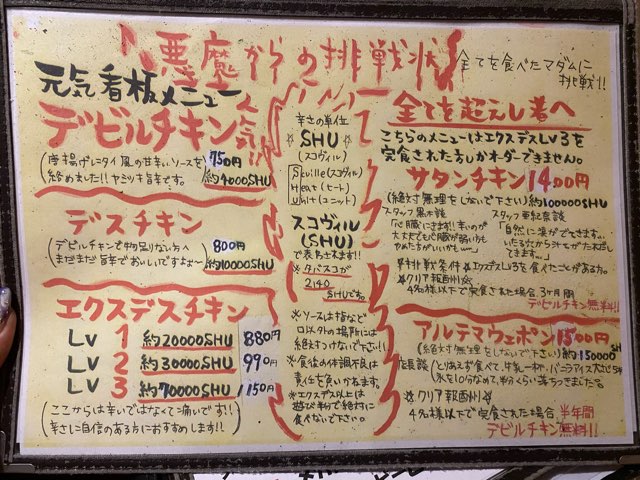 悪魔からの挑戦状
全てを食べたマダムに
挑戦!!
元気看板メニュー
人気
デビルチキン
(唐揚げにタイ風の甘辛いソースを
絡めました!!ヤミツキ旨辛です。
750円
約4000SHU
デスチキン
(デビルチキンで物足りない方へ
まだまだ旨辛でおいしいですよ〜)
800円
約10000SHU
エクスデスチキン
Lv 1 約20000SHU 880円
Lv 2 約30000SHU 990円
Lv 3 約70000SHU 1150円
(ここからは辛いではなくて痛いです!!
辛さに自信のある方におすすめします!!)
辛さの単位
SHU
(スコヴィル)
Scville(スコヴィル)
Heat(ヒート)
Unit(ユニット)
スコヴィル
(SHU)
で表わされます!!
タバスコが
2140
SHUです。
※ソースは指など
口以外の場所には
絶対つけないで下さい!!
※食後の体調不良は
責任を負いかねます。
※エクスデス以上は
遊び半分で絶対に
食べないで下さい。
全てを超えし者へ
こちらのメニューはエクスデスLv3を
完食された方しかオーダーできません。
サタンチキン 1400円
(絶対無理をしないで下さい)約100000SHU
スタッフ黒木談
「心臓にきます!!辛いので
大丈夫でも心臓が弱い方も
やめた方がいいかも…」
スタッフ亜紀奈談
「自然に涙がでてきます…
※挑戦条件 エクスデスLv3を食べたことがある。
☆クリア報酬☆
4名様以下で完食された場合3ヶ月間
デビルチキン無料!!
アルテマウェポン 1500円
(絶対無理をしないで下さい)約150000SHU
店長談(とりあえず食べて、牛乳一杯、バニラアイス大さじ5杯
氷を10分なめて、半分くらい落ちつきました。
☆クリア報酬☆
4名様以下で完食された場合 半年間
デビルチキン無料!!